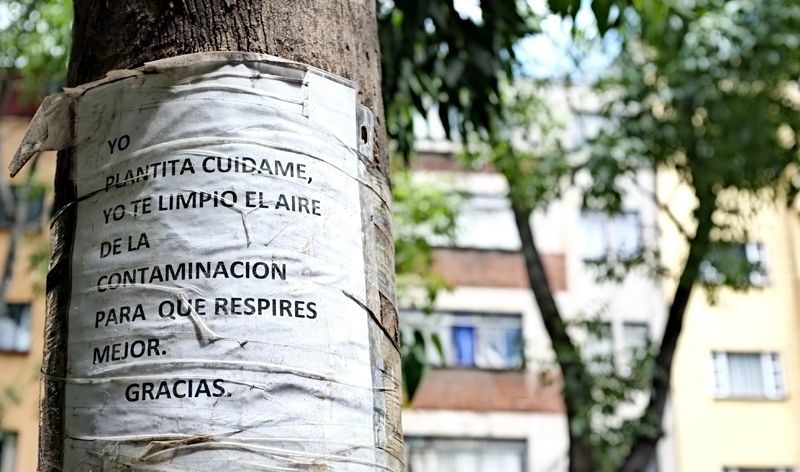 YO
PLANTITA CUIDAME,
YO TE LIMPIO EL AIRE
DE LA
CONTAMINACION
PARA QUE RESPIRES
MEJOR.
GRACIAS.